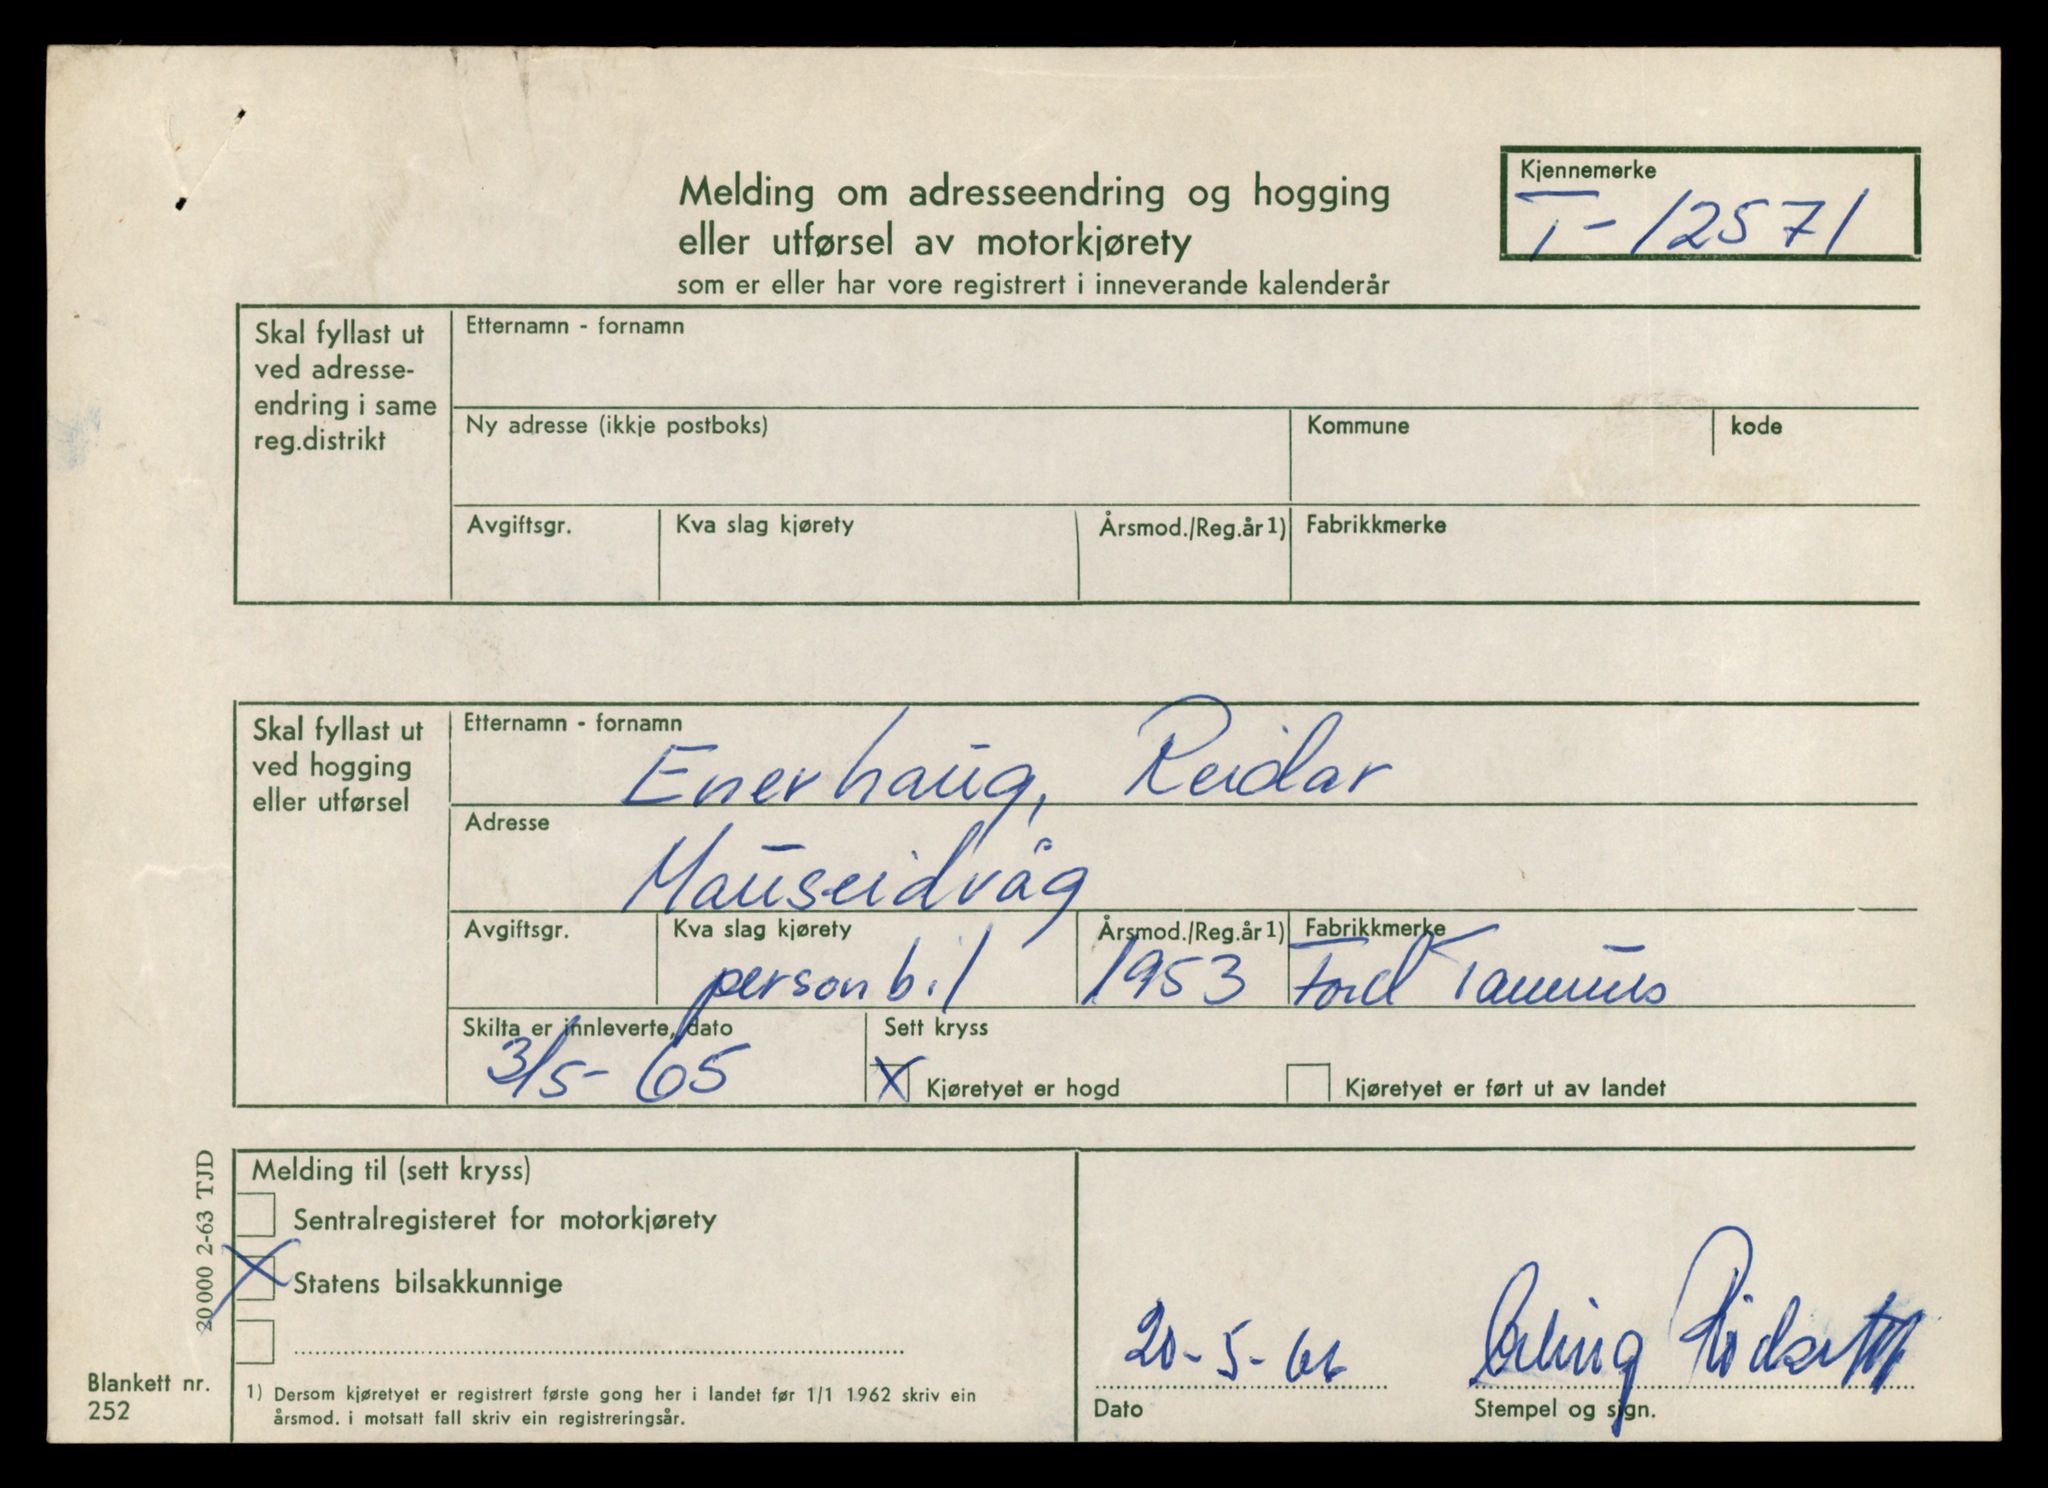 Melding om adresseendring og hogging
eller utførsel av motorkjørety
som er eller har vore registrert i inneverande kalenderår
Kjennemerke
T-12571
Skal fyllast ut
ved adresse-
endring i same
reg.distrikt
Etternamn - fornamn
Ny adresse (ikkje postboks)
Kommune
kode
Avgiftsgr.
Kva slag kjørety
Årsmod./Reg.år 1)
Fabrikkmerke
Skal fyllast ut
ved hogging
eller utførsel
Etternamn - fornamn
Enerhaug, Reidar
Adresse
Mauseidvåg
Avgiftsgr.
Kva slag kjørety
personbil
Årsmod./Reg.år 1)
1953
Fabrikkmerke
Ford Taunus
Skilta er innleverte, dato
3/5-65
Sett kryss
X Kjøretyet er hogd
Kjøretyet er ført ut av landet
Melding til (sett kryss)
Sentralregisteret for motorkjørety
X Statens bilsakkunnige
20 000 2-63 TJD
Blankett nr.
252
1) Dersom kjøretyet er registrert første gong her i landet før 1/1 1962 skriv ein
årsmod. i motsatt fall skriv ein registreringsår.
20-5-66
Dato
Erling
Stempel og sign.